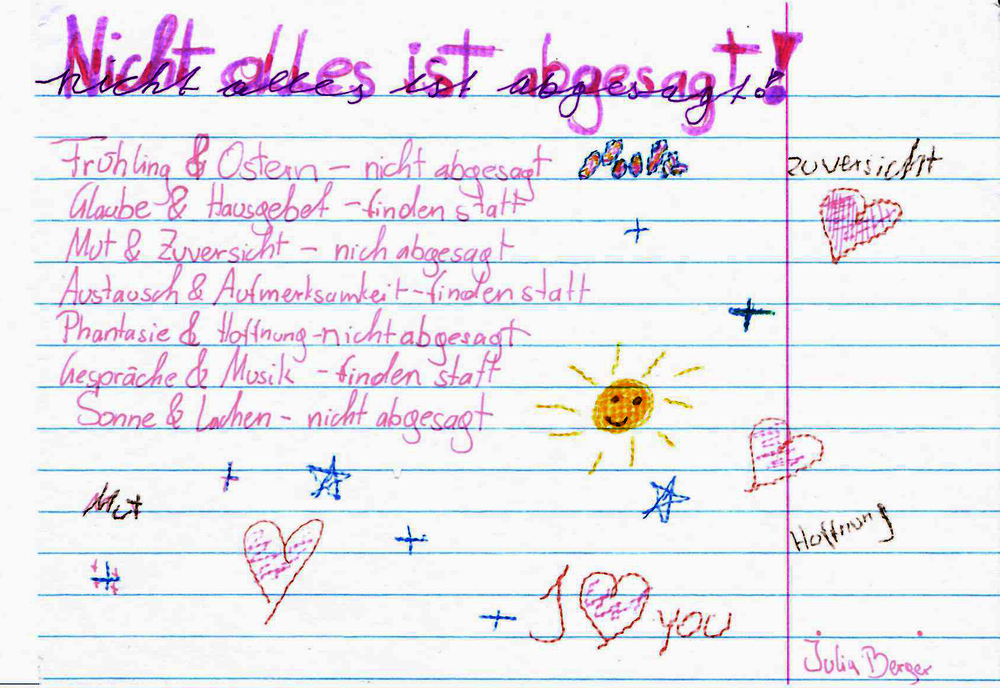 Nicht alles ist abgesagt!
nicht alles ist abgesagt!
Frühling & Ostern - nicht abgesagt
Musik
Zuversicht
Glaube & Hausgebet - finden statt
Mut & Zuversicht - nich abgesagt
Austausch & Aufmerksamkeit - finden statt
Phantasie & Hoffnung - nicht abgesagt
Gespräche & Musik - finden statt
Sonne & Lachen - nicht abgesagt
Mut
Hoffnung
I you
Julia Berger